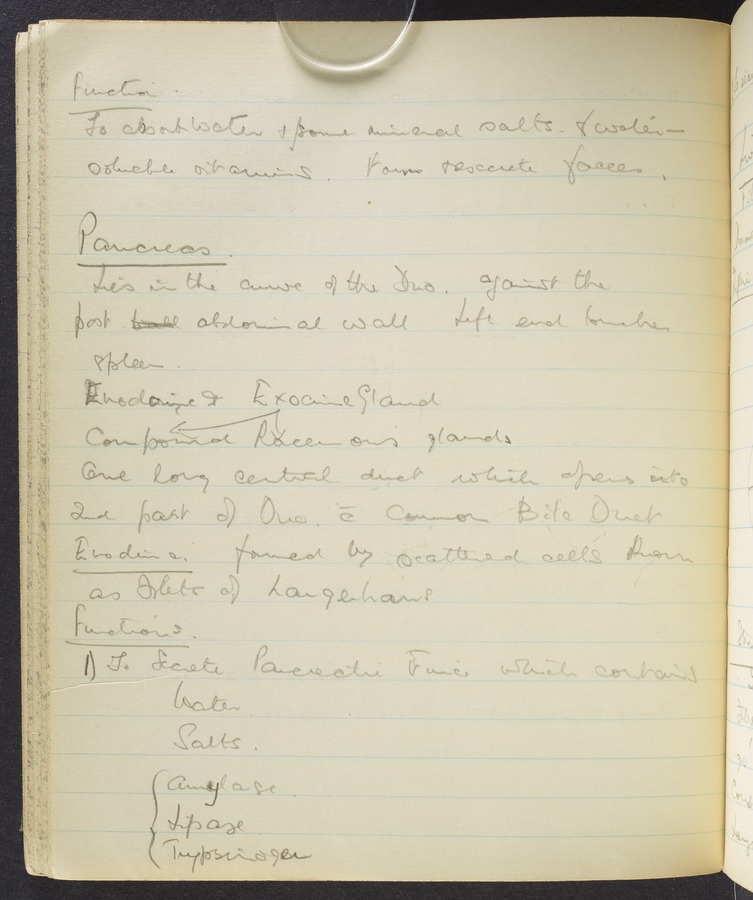 Function.
To absorb Water & some mineral salts. & water-
soluble vitamins. Forms & excrete faeces.
Pancreas.
Lies in the curve of the Duo. against the
post wall abdominal wall Left end touches
spleen.
Endocrine & Exocrine Gland
Compound Racemous glands
One long central duct which opens into
2nd part of Duo. c̄ Common Bile Duct
Endocrine. formed by scattered cells known
as Islets of Langerhans
Functions.
1) To Secrete Pancreatic Juice which contains
Water
Salts.
Amylase
Lipase
Trypsinogen